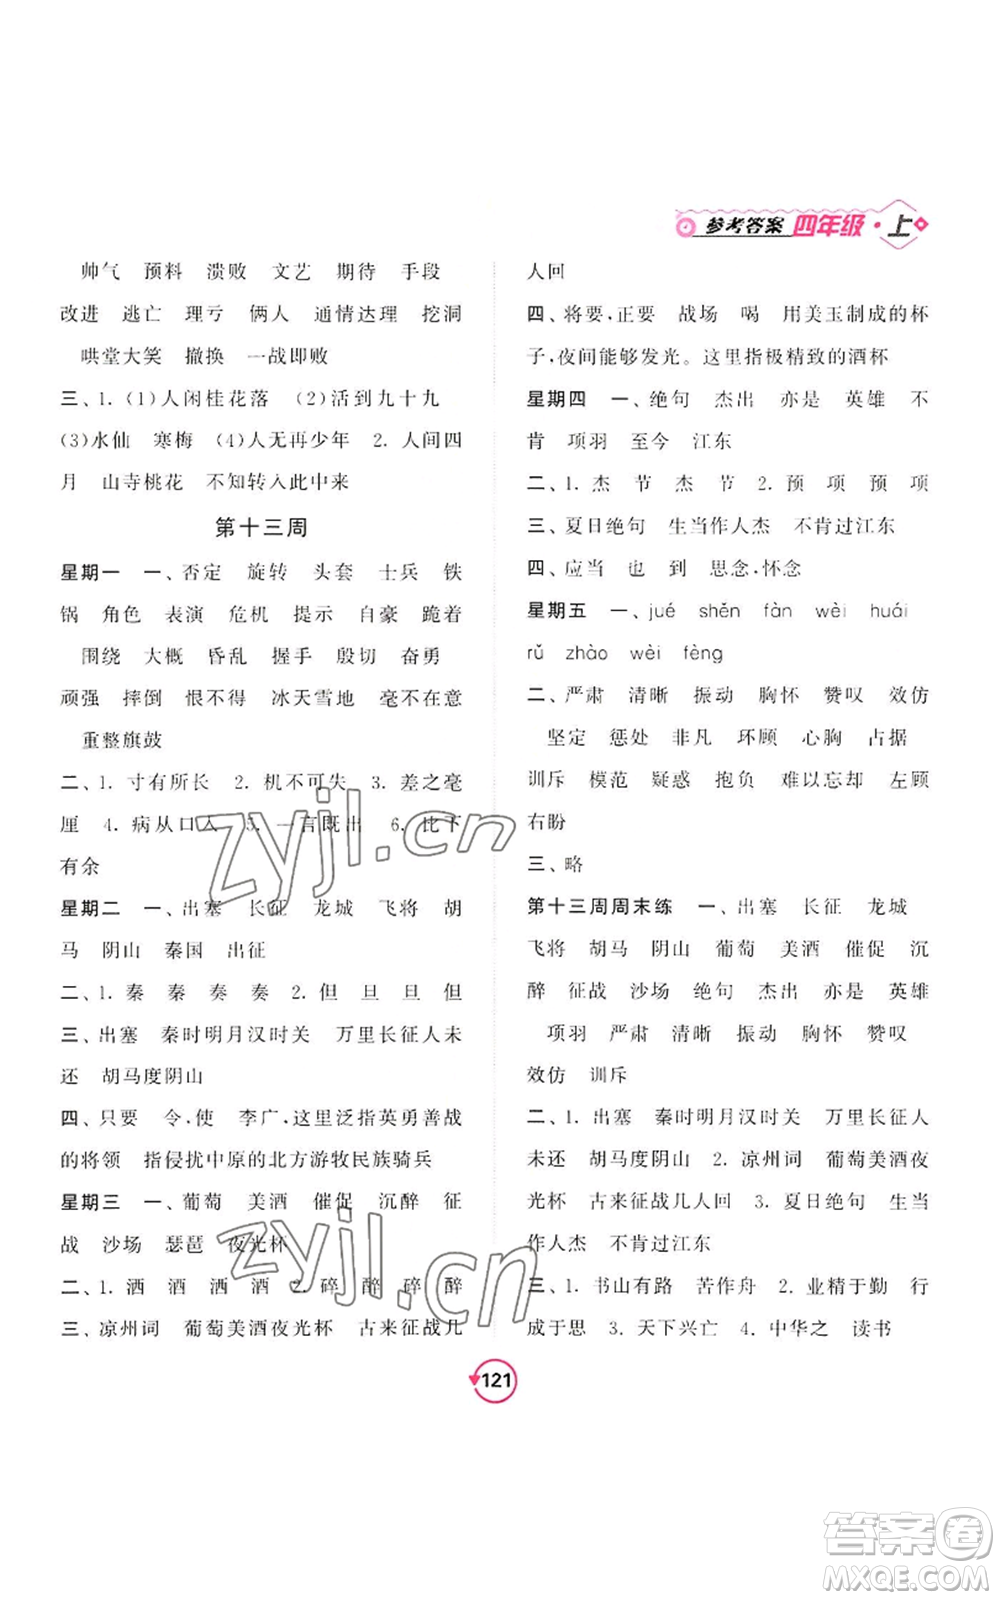 参考答案 四年级·上
帅气 预料 溃败 文艺 期待 手段
改进 逃亡 理亏 俩人 通情达理 挖洞
哄堂大笑 撤换 一战即败
三、1. (1)人闲桂花落 (2)活到九十九
(3)水仙 寒梅 (4)人无再少年 2. 人间四
月 山寺桃花 不知转入此中来
第十三周
星期一 一、否定 旋转 头套 士兵 铁
锅 角色 表演 危机 提示 自豪 跪着
围绕 大概 昏乱 握手 殷切 奋勇
顽强 摔倒 恨不得 冰天雪地 毫不在意
重整旗鼓
二、1. 寸有所长 2. 机不可失 3. 差之毫
厘 4. 病从口入 5. 一言既出 6. 比下
有余
星期二 一、出塞 长征 龙城 飞将 胡
马 阴山 秦国 出征
二、1. 秦 秦 奏 奏 2. 但 旦 旦 但
三、出塞 秦时明月汉时关 万里长征人未
还 胡马度阴山
四、只要 令,使 李广,这里泛指英勇善战
的将领 指侵扰中原的北方游牧民族骑兵
星期三 一、葡萄 美酒 催促 沉醉 征
战 沙场 瑟琶 夜光杯
二、1. 洒 酒 洒 酒 2. 碎 醉 碎 醉
三、凉州词 葡萄美酒夜光杯 古来征战几
人回
四、将要,正要 战场 喝 用美玉制成的杯
子,夜间能够发光。这里指极精致的酒杯
星期四 一、绝句 杰出 亦是 英雄 不
肯 项羽 至今 江东
二、1. 杰 节 杰 节 2. 预 项 预 项
三、夏日绝句 生当作人杰 不肯过江东
四、应当 也 到 思念,怀念
星期五 一、jué shěn fàn wèi huái
rǔ zhào wèi fèng
二、严肃 清晰 振动 胸怀 赞叹 效仿
坚定 惩处 非凡 环顾 心胸 占据
训斥 模范 疑惑 抱负 难以忘却 左顾
右盼
三、略
第十三周周末练 一、出塞 长征 龙城
飞将 胡马 阴山 葡萄 美酒 催促 沉
醉 征战 沙场 绝句 杰出 亦是 英雄
项羽 严肃 清晰 振动 胸怀 赞叹
效仿 训斥
二、1. 出塞 秦时明月汉时关 万里长征人
未还 胡马度阴山 2. 凉州词 葡萄美酒夜
光杯 古来征战几人回 3. 夏日绝句 生当
作人杰 不肯过江东
三、1. 书山有路 苦作舟 2. 业精于勤 行
成于思 3. 天下兴亡 4. 中华之 读书
121
zyjl.cn
zyjl.cn
答案卷
MXQE.COM